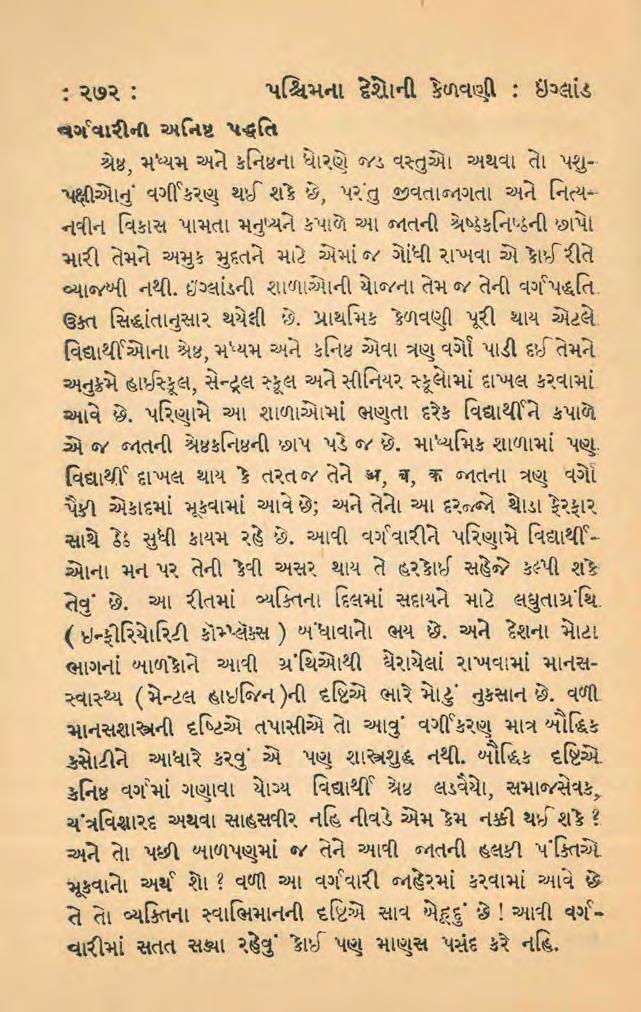 : ૨૭૨ : પશ્ચિમના દેશોની કેળવણી : ઇંગ્લાંડ
વર્ગવારીની અનિષ્ટ પદ્ધતિ
શ્રેષ્ઠ, મધ્યમ અને કનિષ્ઠના ધોરણે જડ વસ્તુઓ અથવા તો પશુ-
પક્ષીઓનું વર્ગીકરણ થઈ શકે છે, પરંતુ જીવતાજાગતા અને નિત્ય-
નવીન વિકાસ પામતા મનુષ્યને કપાળે આ જાતની શ્રેષ્ઠકનિષ્ઠની છાપો
મારી તેમને અમુક મુદતને માટે એમાં જ ગોંધી રાખવા એ કોઈ રીતે
વ્યાજબી નથી. ઇંગ્લાંડની શાળાઓની યોજના તેમ જ તેની વર્ગપદ્ધતિ
ઉક્ત સિદ્ધાંતાનુસાર થયેલી છે. પ્રાથમિક કેળવણી પૂરી થાય એટલે
વિદ્યાર્થીઓના શ્રેષ્ઠ, મધ્યમ અને કનિષ્ઠ એવા ત્રણ વર્ગો પાડી દઈ તેમને
અનુક્રમે હાઈસ્કૂલ, સેન્ટ્રલ સ્કૂલ અને સીનિયર સ્કૂલોમાં દાખલ કરવામાં
આવે છે. પરિણામે આ શાળાઓમાં ભણતા દરેક વિદ્યાર્થીને કપાળે
એ જ જાતની શ્રેષ્ઠકનિષ્ઠની છાપ પડે જ છે. માધ્યમિક શાળામાં પણ
વિદ્યાર્થી દાખલ થાય કે તરત જ તેને અ, ब, क જાતના ત્રણ વર્ગો
પૈકી એકાદમાં મૂકવામાં આવે છે; અને તેનો આ દરજ્જો થોડા ફેરફાર
સાથે ઠેઠ સુધી કાયમ રહે છે. આવી વર્ગવારીને પરિણામે વિદ્યાર્થી-
ઓના મન પર તેની કેવી અસર થાય તે હરકોઈ સહેજે કલ્પી શકે
તેવું છે. આ રીતમાં વ્યક્તિના દિલમાં સદાયને માટે લઘુતાગ્રંથિ
( ઇન્ફીરિયોરિટી કૉમ્પ્લૅક્સ ) બંધાવાનો ભય છે. અને દેશના મોટા
ભાગનાં બાળકોને આવી ગ્રંથિઓથી ઘેરાયેલાં રાખવામાં માનસ-
સ્વાસ્થ્ય ( મેન્ટલ હાઇજિન )ની દૃષ્ટિએ ભારે મોટું નુકસાન છે. વળી
માનસશાસ્ત્રની દૃષ્ટિએ તપાસીએ તો આવું વર્ગીકરણ માત્ર બૌદ્ધિક
કસોટીને આધારે કરવું એ પણ શાસ્ત્રશુદ્ધ નથી. બૌદ્ધિક દૃષ્ટિએ
કનિષ્ઠ વર્ગમાં ગણાવા યોગ્ય વિદ્યાર્થી શ્રેષ્ઠ લડવૈયો, સમાજસેવક,
યંત્રવિશારદ અથવા સાહસવીર નહિ નીવડે એમ કેમ નક્કી થઈ શકે ?
અને તો પછી બાળપણમાં જ તેને આવી જાતની હલકી પંક્તિએ
મૂકવાનો અર્થ શો ? વળી આ વર્ગવારી જાહેરમાં કરવામાં આવે છે
તે તો વ્યક્તિના સ્વાભિમાનની દૃષ્ટિએ સાવ બેહૂદું છે ! આવી વર્ગ-
વારીમાં સતત સબ્યા રહેવું કોઈ પણ માણસ પસંદ કરે નહિ.